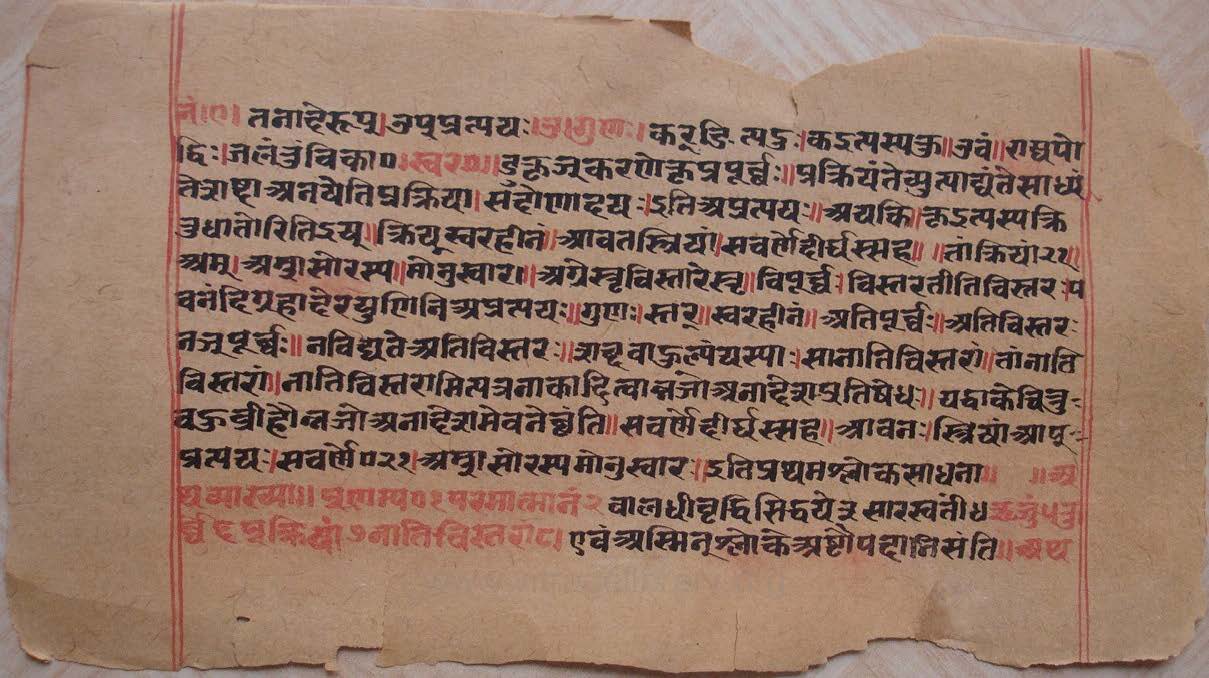 नं।९। तनादेरूप्। उप्प्रत्ययः।उ।गुणः। कर् ङित्यदुः।कऽत्यस्यकु॥उवं॥राद्यपो
द्विः।जलतुंविका०।स्वर०॥डुकृञ्करणेकृप्रपूर्व्वः॥प्रक्रियंतेव्युत्पाद्यंतेसाध्यं
तेशब्दाअनयेतिप्रक्रिया। इतिअप्रत्ययः॥अयकि॥कृऽत्यस्यक्रि
नुधातोरितिऽय्॥क्रिय्स्वरहीनं॥आवतस्त्रियां।सवर्णेदीर्घस्सह॥ ॥तांक्रियां२१॥
अम्।अम्शसोरस्य॥मोनुस्वारः॥अग्रेस्तृविस्तारेस्तृ॥विपूर्व्वः।विस्तरतीतिविस्तरःप
चनंदिग्रहादेरयुणिनिअप्रत्ययः॥गुणः।स्तर्॥स्वरहीनं॥अतिपूर्व्वः॥अतिविस्तरः
नञ्पूर्व्वः॥नविद्यतेअतिविस्तरः॥ सानातिविस्तरां॥तांनाति
विस्तरां॥नातिविस्तरामित्यत्रनाकादित्वान्नञोअनादेशप्रतिषेधः॥यद्वाकेचित्तु-
बहुव्रीहौनञोअनादेशमेवनेच्छंति॥सवर्णेदीर्घस्सह॥आवनः।स्त्रियांआप्-
प्रत्ययः।सवर्णे०२१।अम्शसोरस्यमोनुस्वारः।इतिप्रथमश्लोकसाधना॥ ॥अ
थव्याख्या॥प्रणम्य०१परमात्मानं२बालधीवृद्धिसिद्धये३सारस्वतीं४ऋजुं५कु
र्व्वे६प्रक्रियां७नातिविस्तरां८।एवंअस्मिन्श्लोकेअष्टौपदानिसंति॥अथ